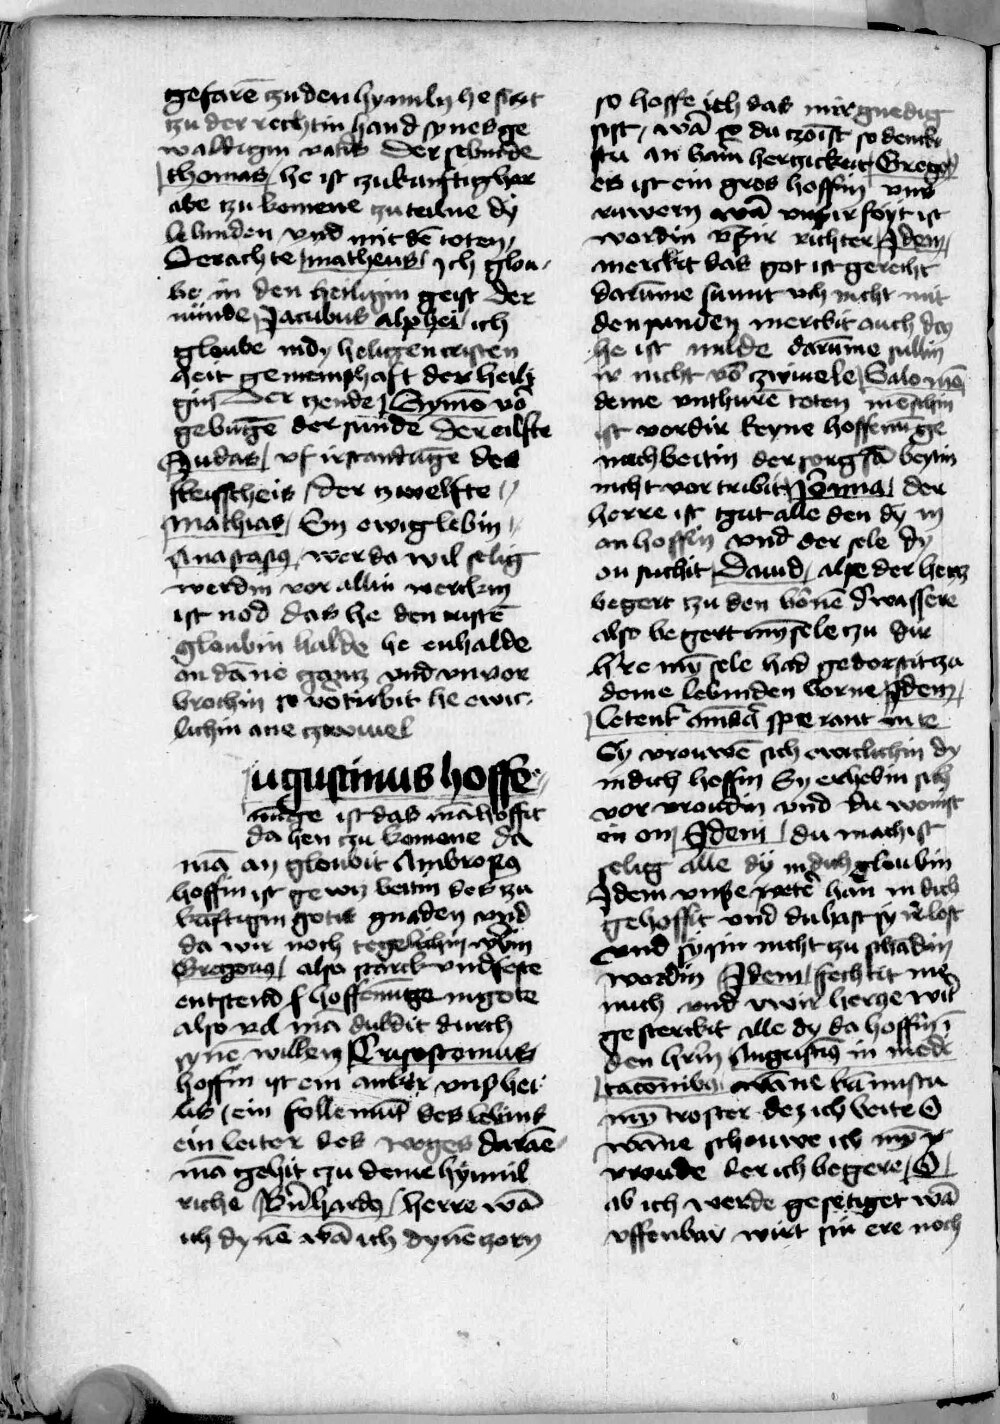 gefarē czu den hymiln he siczt
czu der rechtin hand synes ge
waldigin vatir Der sebinde
thomas he ist czukunftig her
abe czu komene czu teilne dy
lebinden vnd mit dē toten
Der achte matheus Ich glou
be in den heiligin geist Der
nünde Jacubus alphei ich
gloube in dy heligen cristen
heit gemeinschaft der heili
gin Der czende Symon vor
gebūge der sunde Der eilfte
Judas vf irstandūge des
fleisscheis der czwelfte
Mathias Ein ewig lebin
Anastasius wer do wil selig
werdin vor allin werckin
ist nod das he den cristē
gloubin halde he enhalde
on dāne gantz vnd vnvor
brochin so vortirbit he ewic
lichin ane czwiuel
ugustinus hoffe
nūge ist das mā hoffit
da hen czu komene da
mā an gloubit Ambrosius
hoffin ist gewis beitin des zu
kūftigin gotis gnaden vnd
da wir noch tegelichin
Gregorius also starck vnd feste
entstend hoffenūge in gote
also vil mā duldit durch
synē willen Crisostomus
hoffin ist ein anker vnsz hei
lis ein folle mūt des lebins
ein leiter des weges darāe
mā gehit czu deme hymil
riche Bernhardus herre wā
ich dynē wā ich dynē czorn
so hoffe ich das mir gnedig
sist wā so du czornst so denckis
du an barmherczickeit Gregorius
es ist ein gros hoffin vns
ruwern wā vnsir foyt ist
wordin vnsir richter Idem
merckit das got ist gerecht
darūme sumit vch nicht mit
den sunden merckit auch das
he ist milde darūme sullin
ir nicht vor czwiuele Salomō
deme vnthure toten menschin
ist vordir keyne hoffenūge
nach beitin der sorgsā beytin
nicht vortribit der
herre ist gut alle den dy in
on hoffin vnd der sele dy
on suchit Dauid alse der hercz
begert czu den bornē der wassere
also begert myn sele czu dir
h're myn sele had gedorstit czu
deme lebinden borne Idem
Letentur omnes qui sperant in te
Sy vrouwē sich ewiclichin dy
in dich hoffin Sy erhebin sich
vor vroudin vnd du wonist
in on Idem du machist
selig alle dy in dich gloubin
Idem vnse vetere han in dich
gehoffit vnd du hast sy irlost
vnd sy sin nicht czu schādin
wordin Idem fechtit me
nich vnd uwir hercze wirt
gesterckit alle dy da hoffin ī
den h'rin Augustinus in medi
tacionibus wāne kūmistu
myn troster dez ich beite O
wāne schouwe ich myn
vroude der ich begere O
ab ich werde gesetiget wā
vffenbar wirt sin ere noch